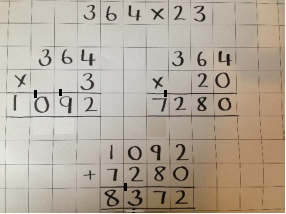 364×23
364
× 3
1092
364
× 20
7280
1092
+ 7280
8372